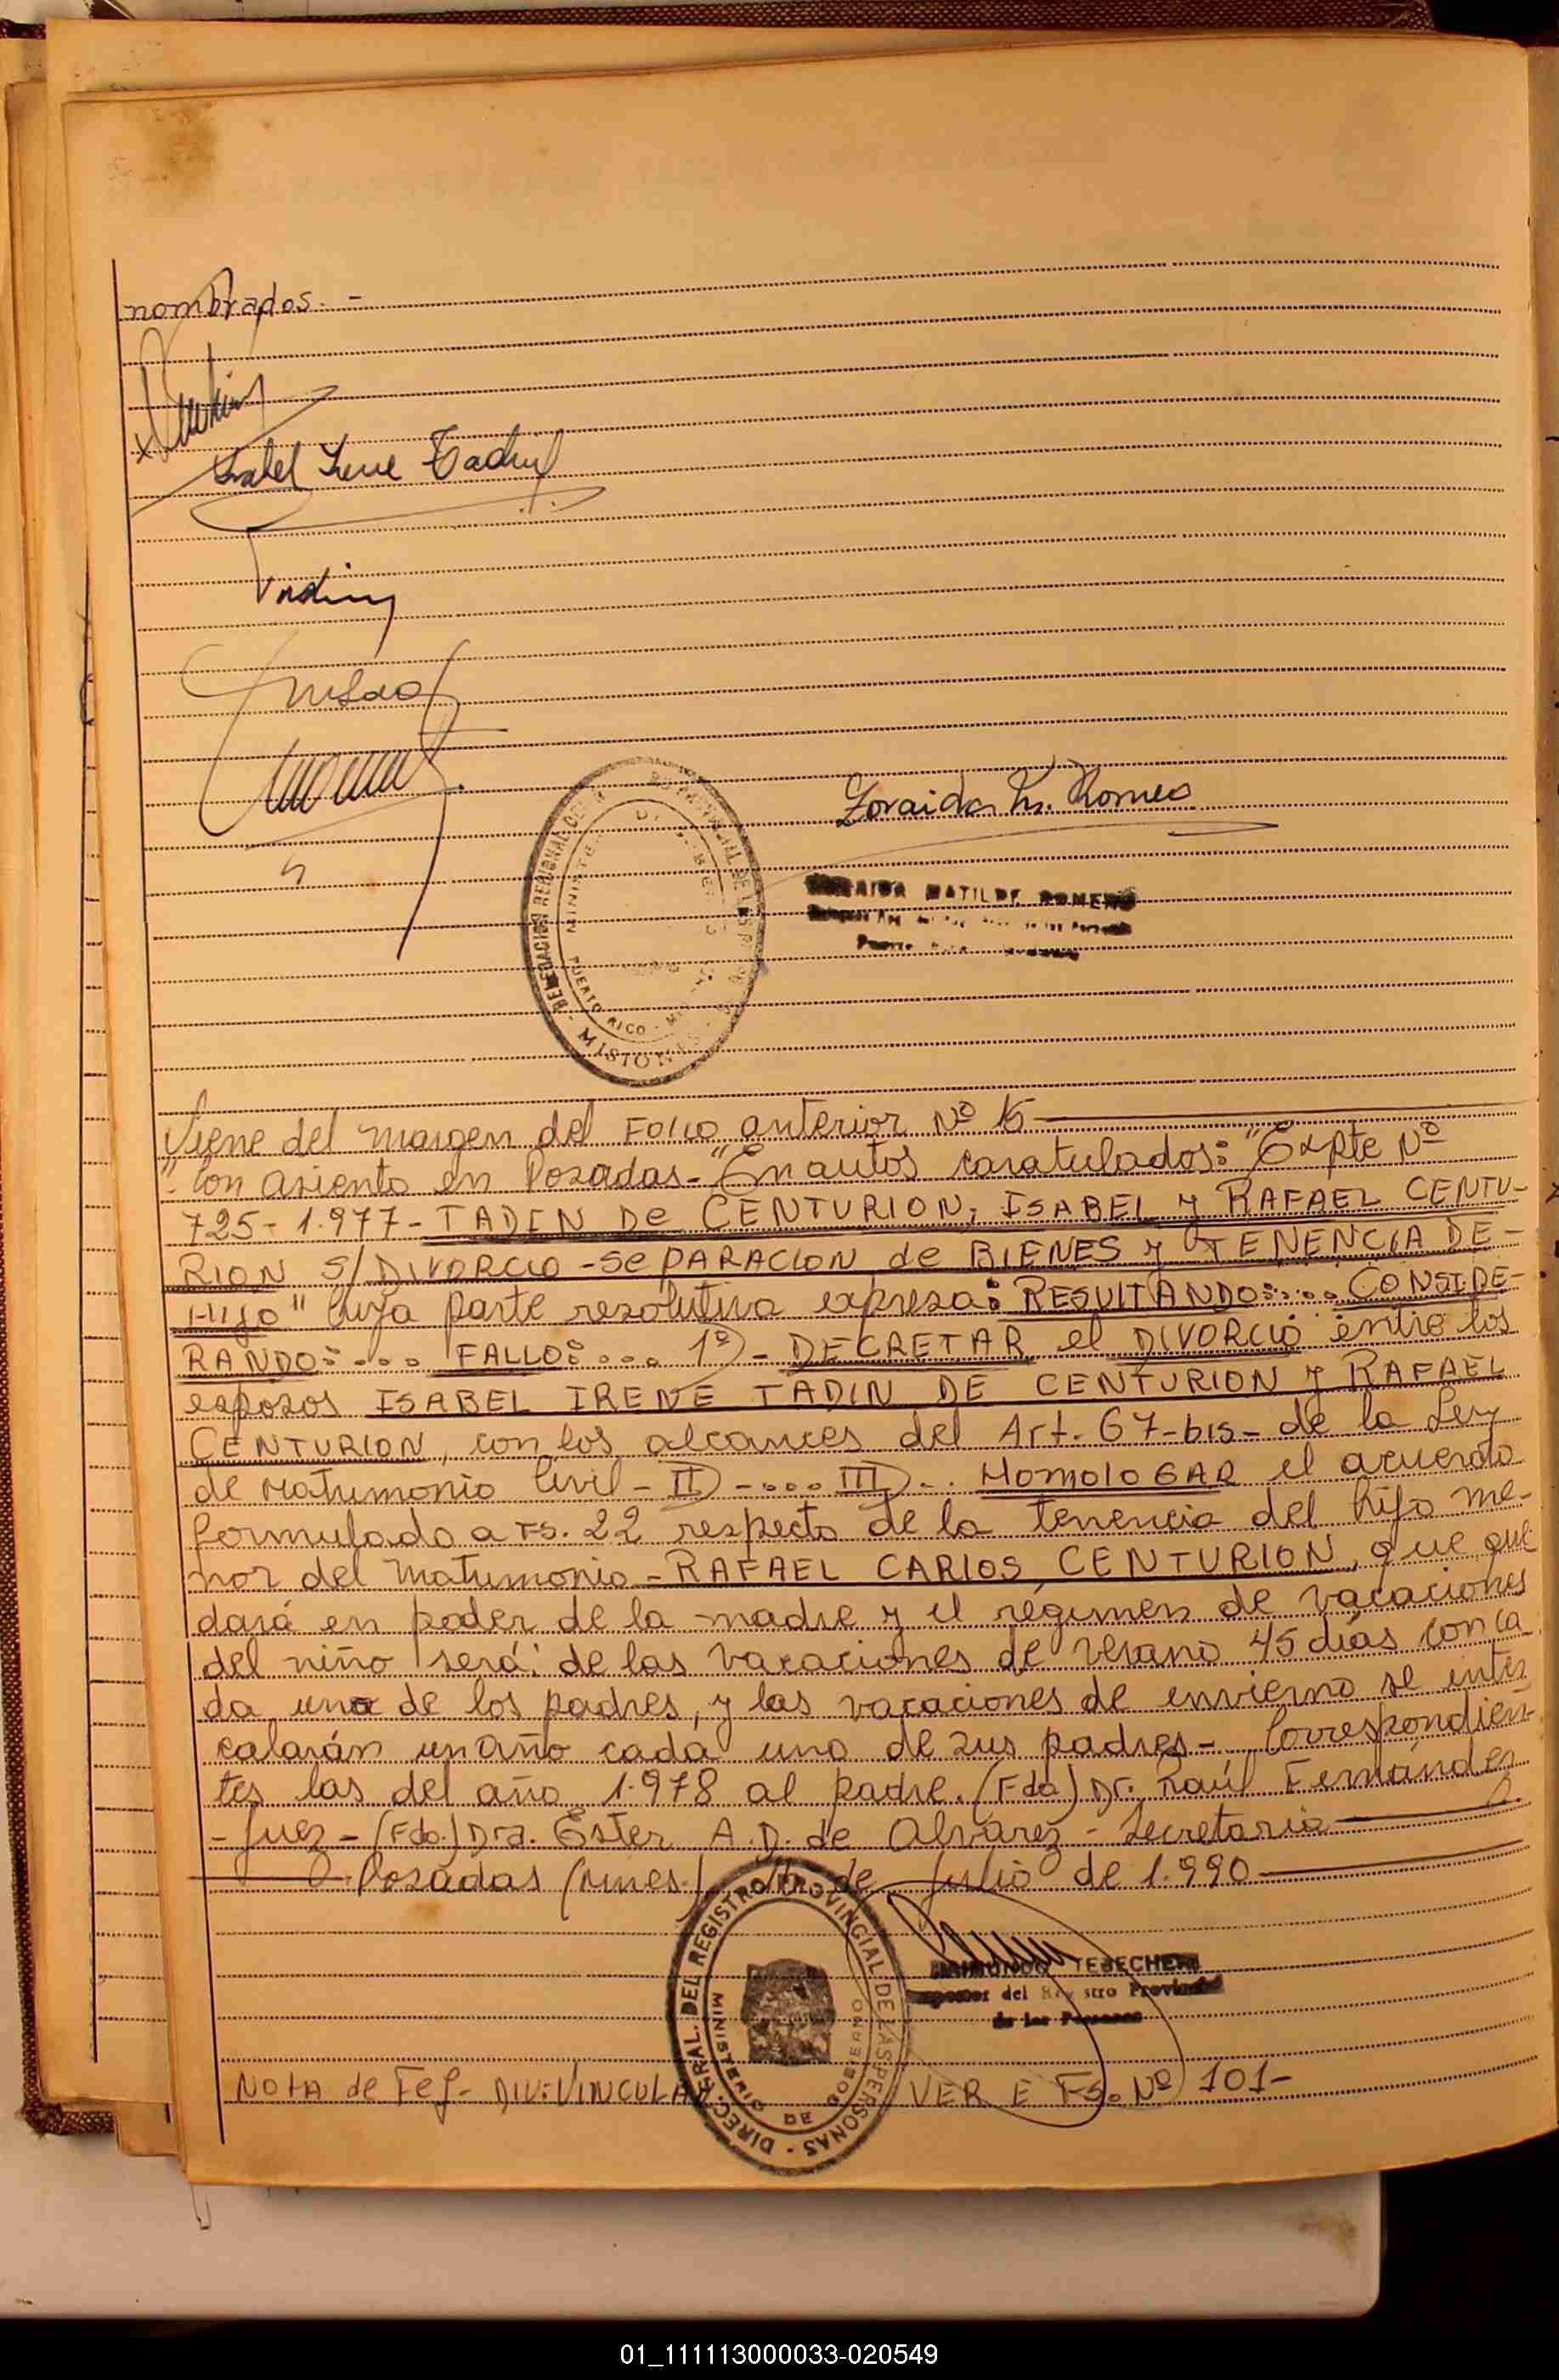 nombrados.-
Isabel Irene Tadin
Tadin
Zoraida M. Romero
DELEGACION REGIONAL
MINISTERIO DE GOBIERNO
PUERTO RICO - MISIONES
ZORAIDA MATILDE ROMERO
Viene del margen del Folio anterior Nº 15
"- Con asiento en Posadas.- "En autos caratulados: "Expte Nº
725-1.977- TADIN De CENTURION, ISABEL y RAFAEL CENTU-
RION S/ DIVORCIO - SePARACION de BIENES y TENENCIA DE-
HIJO" Cuya parte resolutiva expresa: RESULTANDO:.... CONSIDE-
RANDO:.... FALLO:.... 1º)- DECRETAR el DIVORCIO entre los
esposos ISABEL IRENE TADIN DE CENTURION y RAFAEL
CENTURION, con los alcances del Art. 67-bis- de la Ley
de Matrimonio Civil - II) -.... III)-. HOMOLOGAR el acuerdo
formulado a Fs. 22 respecto de la tenencia del hijo me-
nor del matrimonio - RAFAEL CARLOS CENTURION, que que-
dará en poder de la madre y el régimen de vacaciones
del niño será: de las vacaciones de verano 45 días con ca-
da uno de los padres, y las vacaciones de invierno se inter
calarán un año cada uno de sus padres - Correspondien-
tes las del año 1.978 al padre. (Fdo) Dr. Raúl Fernández
- Juez - (Fdo.) Dra. Ester A.D. de Alvarez - Secretaria
Posadas (Mnes.) de Julio de 1.990
DIREC. GRAL. DEL REGISTRO PROVINCIAL DE LAS PERSONAS
MINISTERIO DE GOBIERNO
RAIMUNDO TESECHERI
Inspector del Registro Provincial
de las Personas
NOTA de Ref- DIV: VINCULAR VER E Fs. Nº 101-
01_111113000033-020549